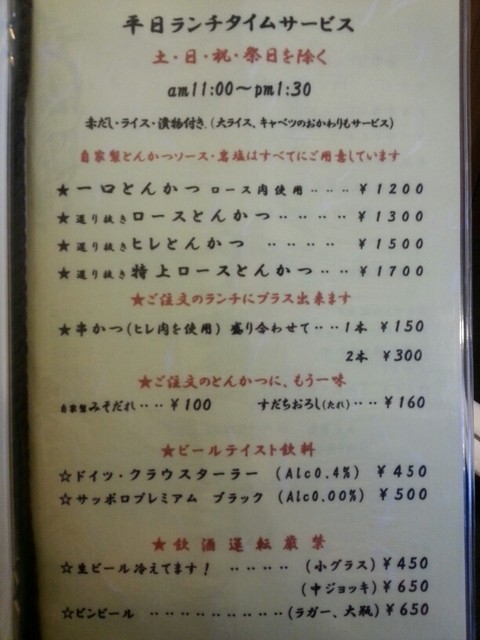 平日ランチタイムサービス
土・日・祝・祭日を除く
am11:00～pm1:30
赤だし・ライス・漬物付き.(大ライス、キャベツのおかわりもサービス)
自家製とんかつソース・岩塩はすべてにご用意しています
★一口とんかつ ロース肉使用‥‥ ¥1200
★選り抜きロースとんかつ‥‥‥‥ ¥1300
★選り抜きヒレとんかつ ‥‥‥‥ ¥1500
★選り抜き特上ロースとんかつ‥‥ ¥1700
★ご注文のランチにプラス出来ます
★串かつ(ヒレ肉を使用) 盛り合わせて‥‥1本 ¥150
2本 ¥300
★ご注文のとんかつに、もう一味
自家製みそだれ‥‥ ¥100 すだちおろし(たれ)‥‥ ¥160
★ビールテイスト飲料
☆ドイツ・クラウスターラー (Alc0.4%) ¥450
☆サッポロプレミアム ブラック (Alc0.00%) ¥500
★飲酒運転厳禁
☆生ビール冷えてます! ‥‥‥‥ (小グラス) ¥450
(中ジョッキ) ¥650
☆ビンビール ‥‥‥‥‥‥‥‥‥(ラガー、大瓶) ¥650